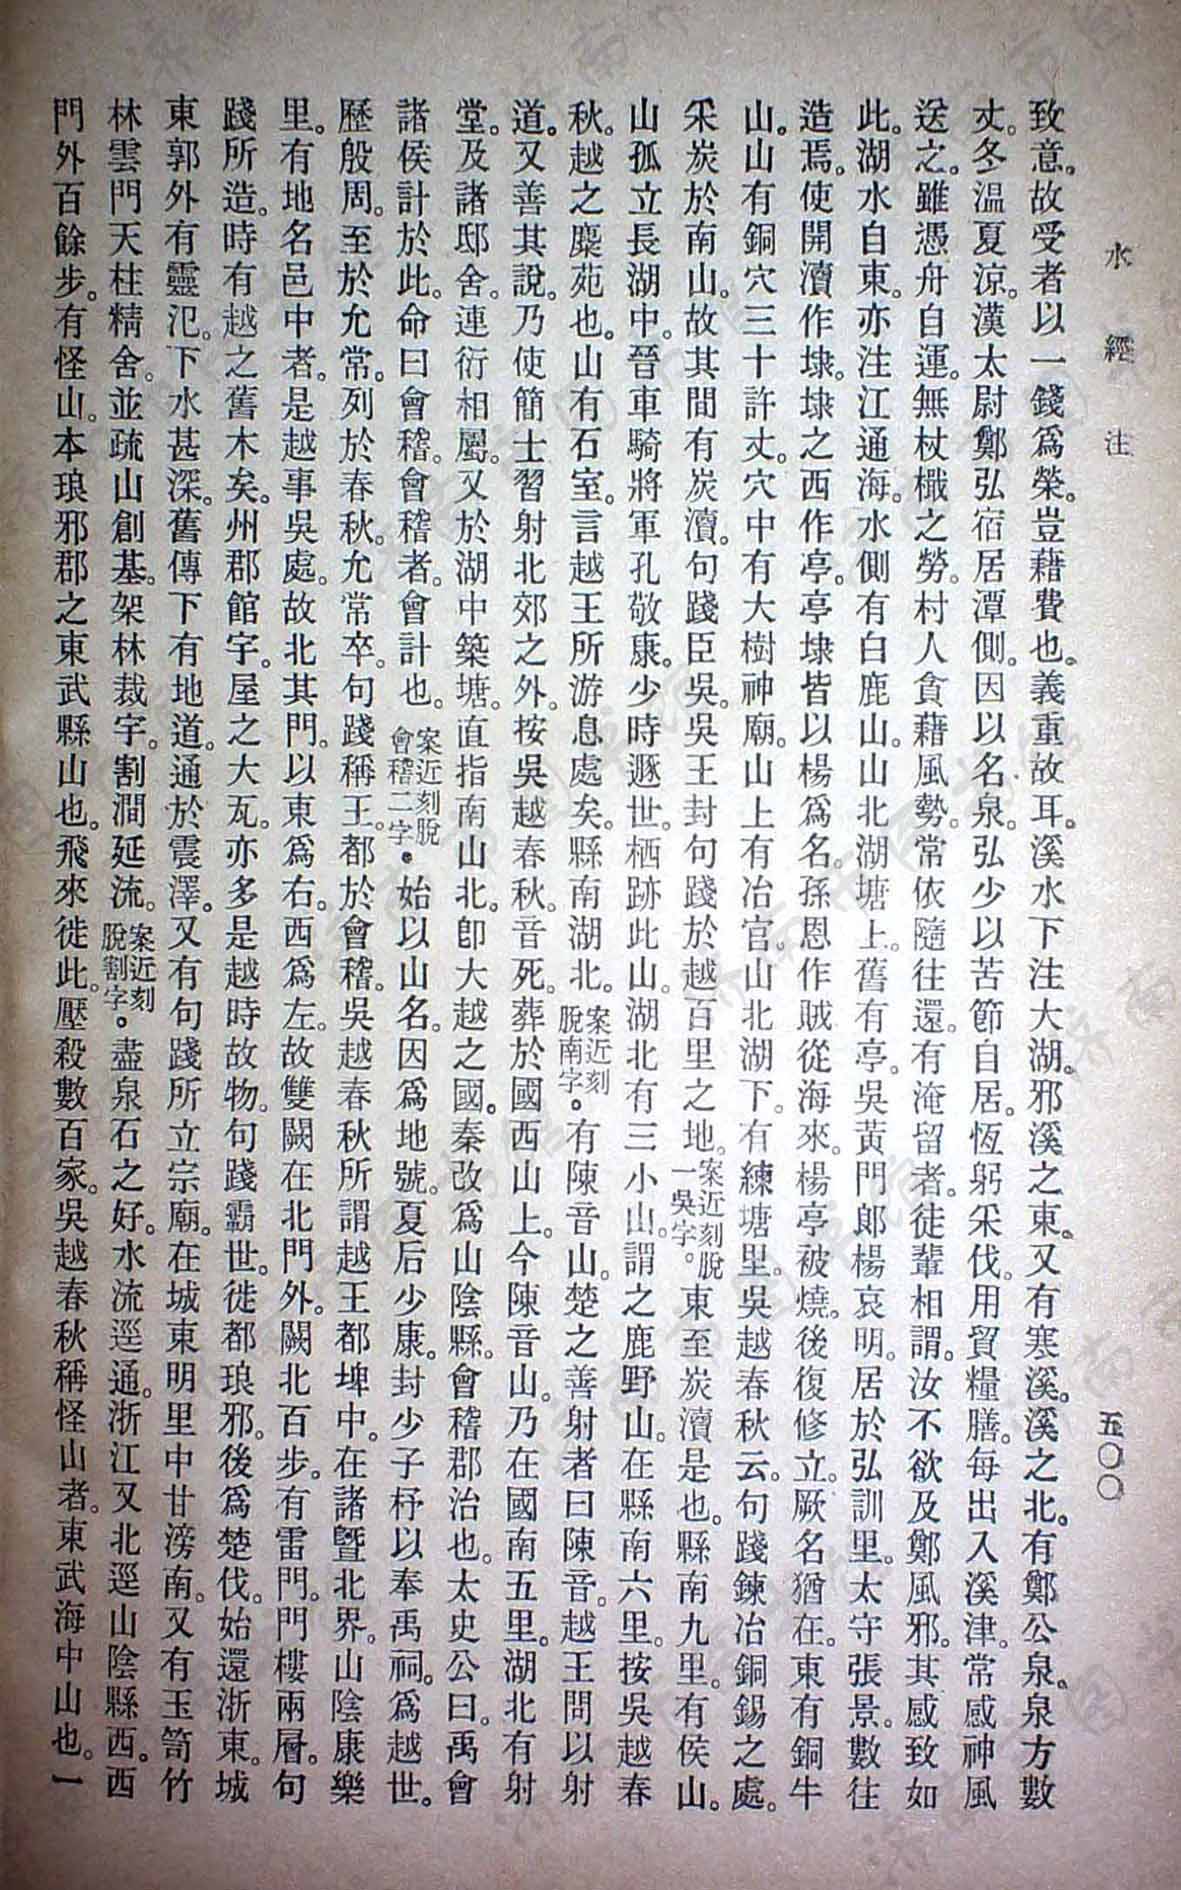 水經注
五〇〇
致意。故受者以一錢爲榮。豈藉費也。義重故耳。溪水下注大湖。邪溪之東。又有寒溪。溪之北。有鄭公泉。泉方數
丈。冬溫夏涼。漢太尉鄭弘宿居潭側。因以名泉。弘少以苦節自居。恆躬采伐。用貿糧膳。每出入溪津。常感神風
送之。雖憑舟自運。無杖檝之勞。村人貪藉風勢。常依隨往還。有淹留者。徒輩相謂。汝不欲及鄭風邪。其感致如
此。湖水自東。亦注江通海。水側有白鹿山。山北湖塘上。舊有亭。吳黃門郎楊哀明。居於弘訓里。太守張景。數往
造焉。使開瀆作埭。埭之西作亭。亭埭皆以楊爲名。孫恩作賊從海來。楊亭被燒。後復修立。厥名猶在。東有銅牛
山。山有銅穴三十許丈。穴中有大樹神廟。山上有冶官。山北湖下。有練塘里。吳越春秋云。句踐鍊冶銅錫之處。
采炭於南山。故其間有炭瀆。句踐臣吳。吳王封句踐於越百里之地。案近刻脫一吳字。東至炭瀆是也。縣南九里。有侯山。
山孤立長湖中。晉車騎將軍孔敬康。少時遯世。栖跡此山。湖北有三小山。謂之鹿野山。在縣南六里。按吳越春
秋。越之麋苑也。山有石室。言越王所游息處矣。縣南湖北。案近刻脫南字。有陳音山。楚之善射者曰陳音。越王問以射
道。又善其說。乃使簡士習射北郊之外。按吳越春秋。音死。葬於國西山上。今陳音山。乃在國南五里。湖北有射
堂。及諸邸舍。連衍相屬。又於湖中築塘。直指南山北。卽大越之國。秦改爲山陰縣。會稽郡治也。太史公曰。禹會
諸侯計於此。命曰會稽。會稽者。會計也。案近刻脫會稽二字。始以山名。因爲地號。夏后少康。封少子杼以奉禹祠。爲越世。
歷殷周。至於允常。列於春秋。允常卒。句踐稱王。都於會稽。吳越春秋所謂越王都埤中。在諸暨北界。山陰康樂
里。有地名邑中者。是越事吳處。故北其門。以東爲右。西爲左。故雙闕在北門外。闕北百步。有雷門。門樓兩層。句
踐所造。時有越之舊木矣。州郡館宇。屋之大瓦。亦多是越時故物。句踐霸世。徙都琅邪。後爲楚伐。始還浙東。城
東郭外有靈汜。下水甚深。舊傳下有地道。通於震澤。又有句踐所立宗廟。在城東明里中甘滂南。又有玉笥竹
林雲門天柱精舍。並疏山創基。架林裁宇。割澗延流。案近刻脫割字。盡泉石之好。水流逕通。浙江又北逕山陰縣西。西
門外百餘步。有怪山。本琅邪郡之東武縣山也。飛來徙此。壓殺數百家。吳越春秋稱怪山者。東武海中山也。一